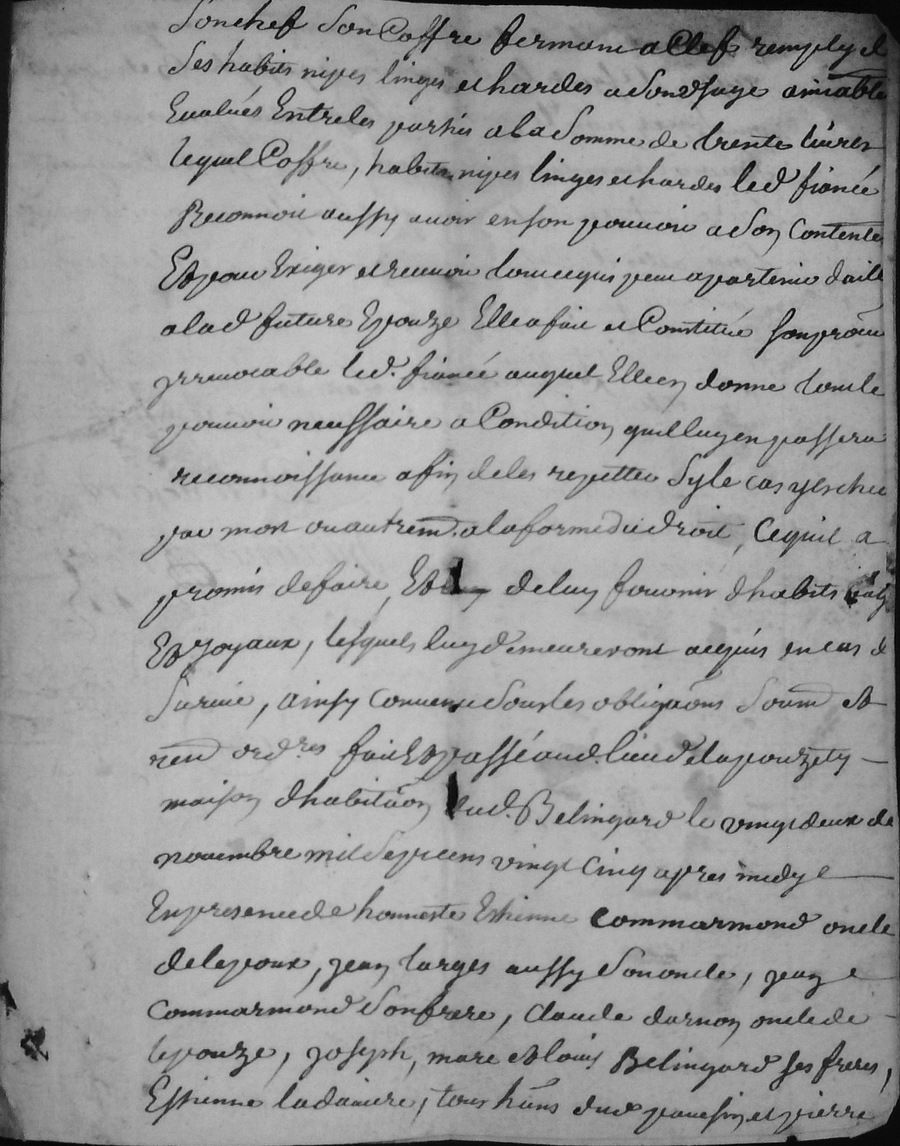 Sonchef Son Coffre fermant a Clef remply d
Ses habits nipes linges et hardes a Son Usage amiable
Evalués Entre les parties a la Somme de trente livres
lequel Coffre, habits nipes linges et hardes led fiancé
Reconnoit aussy avoir en son pouvoir a Son Contente
Et pour Exiger et recevoir tout ce qui peut apartenir d'aill
a lad future Epouze Elle a fait et Constitué son
irrevocable led. fiancé auquel Elle en donne tout le
pouvoir necessaire a Condition quil luy en passera
reconnoissance afin de les repetter Sy le cas y eschu
par mort ou autremt a la forme du droit, Ce quil a
promis de faire, Et de luy fournir d habits
Et Joyaux, lesquels luy demeureront acquis en cas d
Survie, ainsy convenu Sous les obligaons Soumo et
renon ordres fait Et passé aud. lieu de la pouzety
maison d'habitaon dud. Belingard le vingt deux de
novembre mil Sept cens vingt Cinq apres midy
En presence de honneste Estienne Commarmond oncle
de lepoux, jean larges aussy Son oncle, jean
Commarmond Son frere, Claude darnon oncle de
lepouze, Joseph, marc et louis Belingard ses freres,
Estienne ladaviere, tous hans dud et pierre